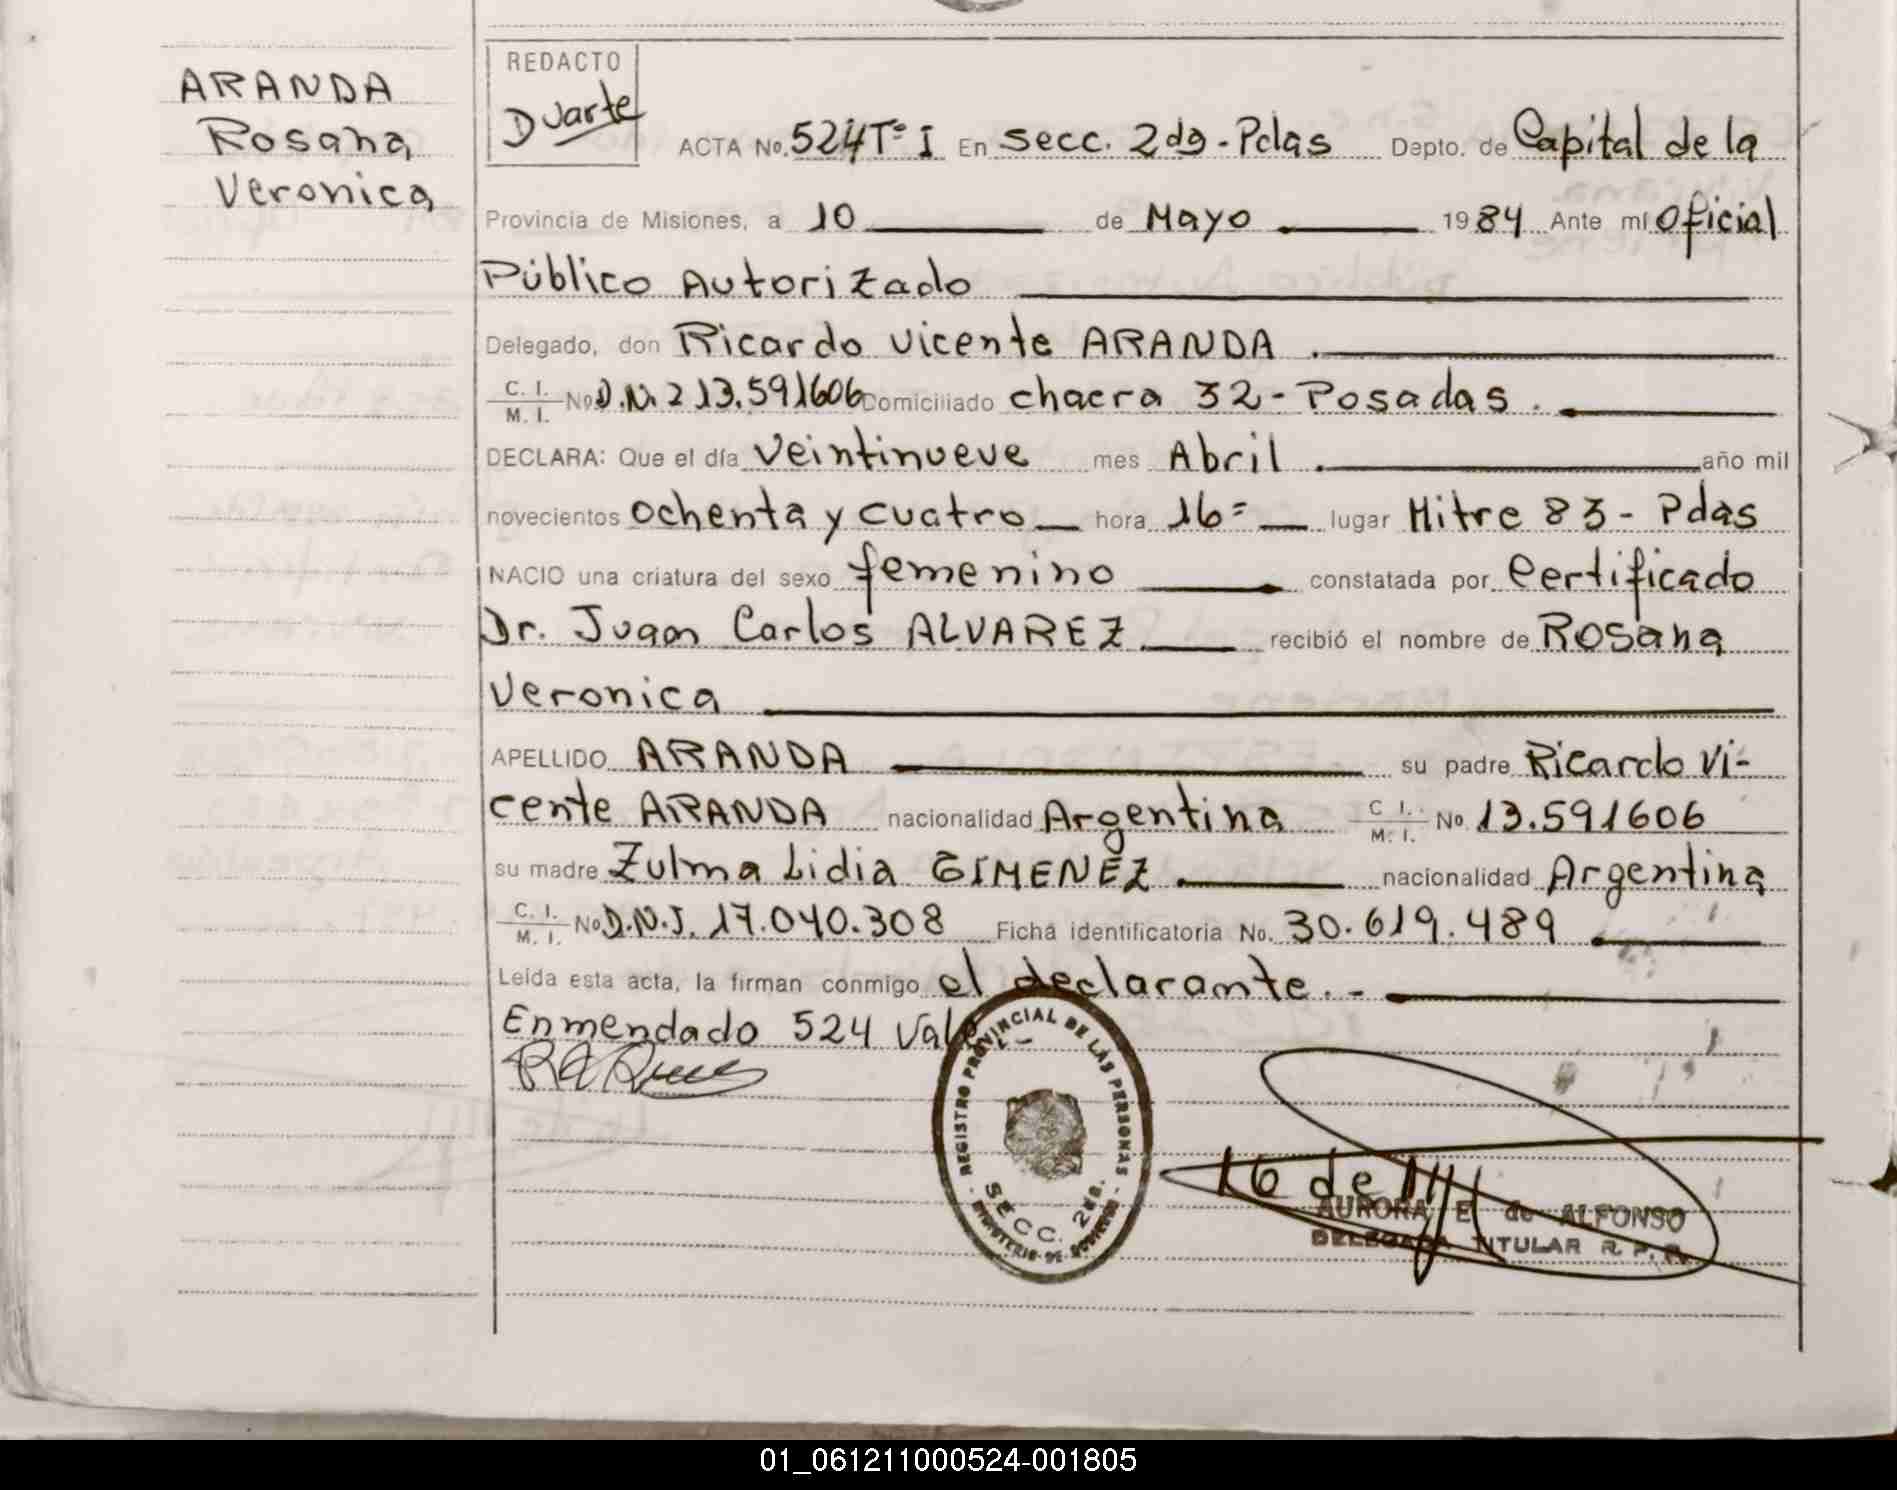 ARANDA
Rosana
Veronica
REDACTO
Duarte
ACTA No. 524 Tº I En secc. 2da - Pdas Depto. de Capital de la
Provincia de Misiones, a 10 de Mayo 1984 Ante mí Oficial
Público Autorizado
Delegado, don Ricardo Vicente ARANDA.
C. I. M. I. No D.N.I 13.591606 Domiciliado chacra 32 - Posadas.
DECLARA: Que el día veintinueve mes Abril. año mil
novecientos ochenta y cuatro hora 16= lugar Mitre 83 - Pdas
NACIO una criatura del sexo femenino constatada por Certificado
Dr. Juan Carlos ALVAREZ recibió el nombre de Rosana
Veronica
APELLIDO ARANDA su padre Ricardo Vi-
cente ARANDA nacionalidad Argentina C. I. M. I. No. 13.591606
su madre Zulma Lidia GIMENEZ nacionalidad Argentina
C. I. M. I. No D.N.I. 17.040.308 Ficha identificatoria No. 30.619.489
Leída esta acta, la firman conmigo el declarante. -
Enmendado 524 Vale
REGISTRO PROVINCIAL DE LAS PERSONAS
SECC. 2da.
MINISTERIO DE GOBIERNO
AURORA E de ALFONSO
DELEGADA TITULAR R. P. P.
01_061211000524-001805